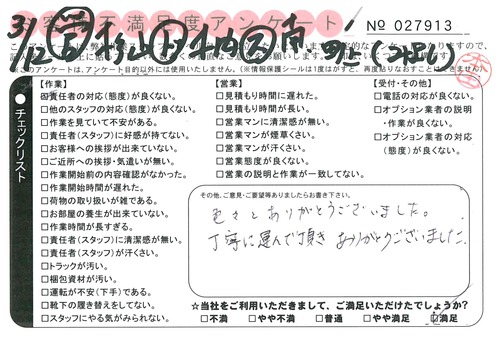 お客様不満足度アンケート
No 027913
31/12
このアンケートは、アンケート目的以外には使用いたしません。(※情報保護シールは1度はがすと、再度貼りなおすことはできません。)
チェックリスト
【作業】
□責任者の対応(態度)が良くない。
□他のスタッフの対応(態度)が良くない。
□作業を見ていて不安がある。
□責任者(スタッフ)に好感が持てない。
□お客様への挨拶が出来ていない。
□ご近所への挨拶・気遣いが無い。
□作業開始前の内容確認がなかった。
□作業開始時間が遅れた。
□荷物の取り扱いが雑である。
□お部屋の養生が出来ていない。
□作業時間が長すぎる。
□責任者(スタッフ)に清潔感が無い。
□責任者(スタッフ)が汗くさい。
□トラックが汚い。
□梱包資材が汚い。
□運転が不安(下手)である。
□靴下の履き替えをしてない。
□スタッフにやる気がみられない。
【営業】
□見積もり時間に遅れた。
□見積もり時間が長い。
□営業マンに清潔感が無い。
□営業マンが煙草くさい。
□営業マンが汗くさい。
□営業態度が良くない。
□営業の説明と作業が一致してない。
【受付・その他】
□電話の対応が良くない。
□オプション業者の説明・作業が良くない。
□オプション業者の対応(態度)が良くない。
その他、ご意見・ご要望等ありましたらお書き下さい。
色々とありがとうございました。
丁寧に運んで頂き ありがとうございました。
☆当社をご利用いただきまして、ご満足いただけたでしょうか?
□不満 □やや不満 □普通 □やや満足 ☑満足